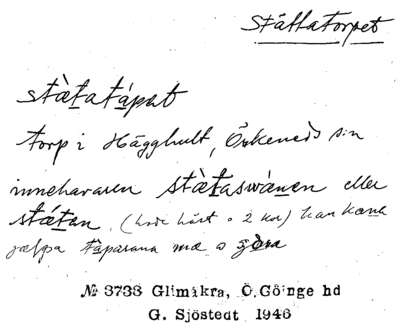 Stättatorpet
stæ̀tatápət
torp i Hägghult, Örkeneds sn
innehavaren stæ̀taswánen eller
stǽtan. (hade häst o 2 kor) han
tàparana mæ o göra
№ 3733 Glimåkra, Ö.Göinge hd
G. Sjöstedt 1946